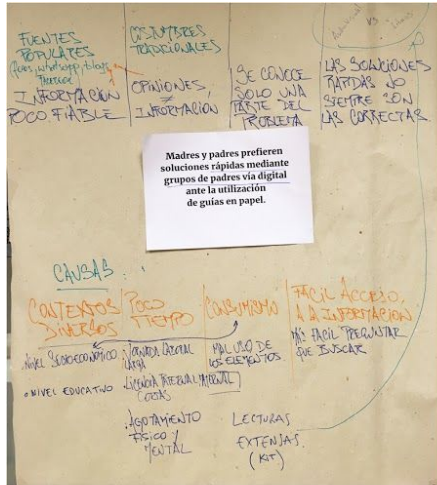 FUENTES
POPULARES
whatsapp, blogs,
INFORMACIÓN
POCO FIABLE
COSTUMBRES
TRADICIONALES
OPINIONES
≠
INFORMACIÓN
SE CONOCE
SOLO UNA
PARTE DEL
PROBLEMA
VS
LAS SOLUCIONES
RÁPIDAS NO
SIEMPRE SON
LAS CORRECTAS.
Madres y padres prefieren
soluciones rápidas mediante
grupos de padres vía digital
ante la utilización
de guías en papel.
CAUSAS:
CONTEXTOS
DIVERSOS
• NIVEL SOCIOECONÓMICO
• NIVEL EDUCATIVO
POCO
TIEMPO
• JORNADA LABORAL
LARGA
• LICENCIA PATERNAL/MATERNAL
CORTAS
• AGOTAMIENTO
FÍSICO Y
MENTAL
CONSUMISMO
MAL USO DE
LOS ELEMENTOS.
LECTURAS
EXTENSAS
(KIT)
FÁCIL ACCESO
A LA INFORMACIÓN
MÁS FÁCIL PREGUNTAR
QUE BUSCAR